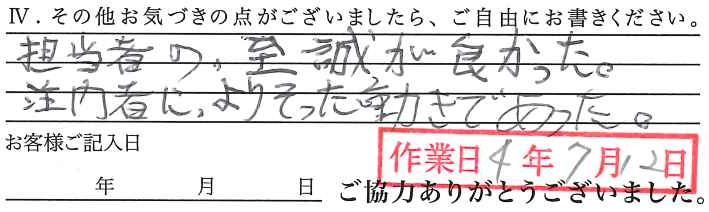 Ⅳ．その他お気づきの点がございましたら、ご自由にお書きください。
担当者の、至誠が良かった。
注内者に、よりそった動きであった。
お客様ご記入日
作業日4年7月12日
年　月　日
ご協力ありがとうございました。